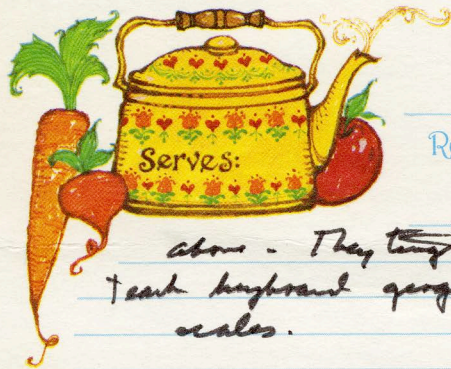 Serves:
R
above - They
Teach keyboard geog
scales.